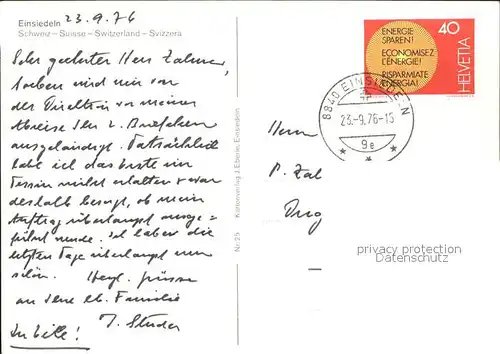 Einsiedeln 23.9.76
Schweiz – Suisse – Switzerland – Svizzera
Sehr geehrter Herr Zahner,
soeben wird mir von
der Direktion vor meiner
Abreise Ihr 2. Briefchen
ausgehändigt. Tatsächlich
habe ich das erste im
Tessin nicht erhalten & war
deshalb besorgt, ob mein
Auftrag überhaupt ausge=
führt wurde. Ich habe die
letzten Tage überhaupt
schön. Herzl. Grüsse
an Ihre lb. Familie
J. Studer
In Eile!
Nr. 25 Kartenverlag J. Eberle, Einsiedeln
ENERGIE
SPAREN!
ECONOMISEZ
L'ÉNERGIE!
RISPARMIATE
ENERGIA!
40
HELVETIA
8840 EINSIEDELN
23.-9.76-15
9e
Herrn
P. Zal
Zug
privacy protection
Datenschutz